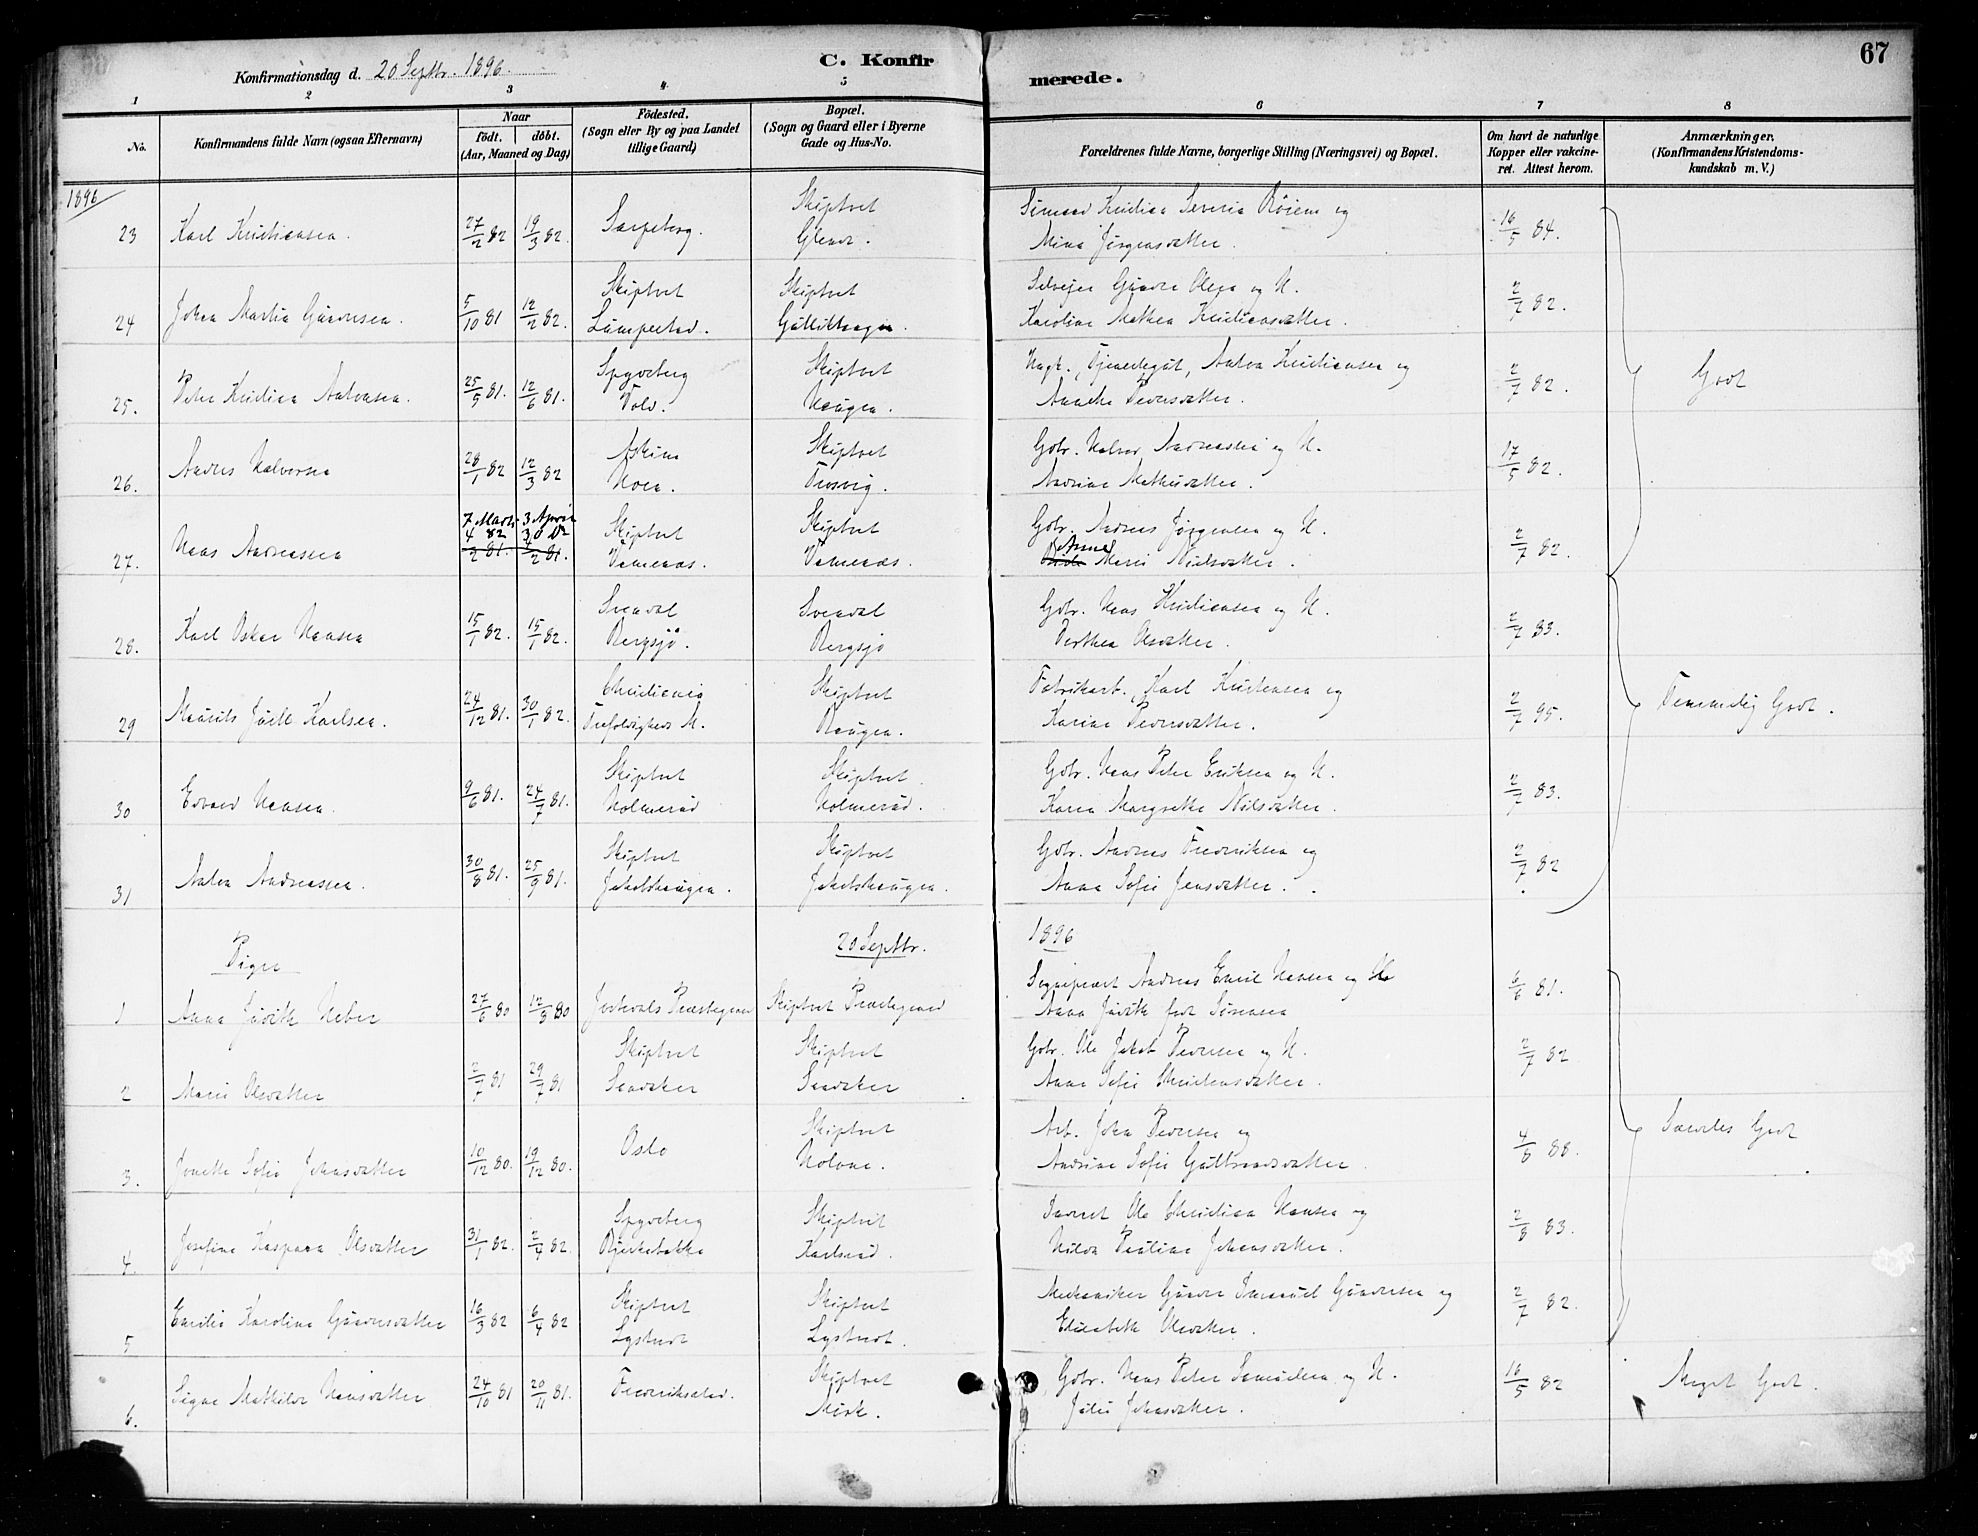 67
Konfirmationsdag d. 20 Septbr. 1896.
C. Konfirmerede.
1 2 3 4 5 6 7 8
No.
Konfirmandens fulde Navn (ogsaa Efternavn)
Naar
födt. döbt.
(Aar, Maaned og Dag)
Födested.
(Sogn eller By og paa Landet
tillige Gaard)
Bopæl.
(Sogn og Gaard eller i Byerne
Gade og Hus-No.
Forældrenes fulde Navne, borgerlige Stilling (Næringsvei) og Bopæl.
Om havt de naturlige
Kopper eller vakcine-
ret. Attest herom.
Anmærkninger.
(Konfirmandens Kristendoms-
kundskab m. V.)
1896
23 Karl Kristiansen. 27/2 82 19/3 82. Sarpsborg. Skiptvet
Kristian Severin og
Mina Jörgensdatter. 16/5 84.
24 Johan Martin Gundersen. 5/10 81 12/2 82. Skiptvet Lumperud. Skiptvet
Selvejer Gunder Olsen og H.
Karoline Mathea Kristiansdatter. 2/7 82.
25. Peter Kristian Antonsen. 25/5 81. 12/6 81. Spydeberg Skiptvet Haugen.
Anton Kristiansen og
Pedersdatter. 2/7 82. Godt
26. Anders Halvorsen 28/1 82 12/3 82 Askim Skiptvet
Gbr. Halvor Andreassen og H.
Andrine Mathisdatter. 17/5 82.
27. Hans Andreassen 7 Marts 82 3 April 82 Skiptvet Vamenæs. Skiptvet Vamenæs.
Gbr. Andreas Jørgensen og H.
Anne Marie Nielsdatter. 2/7 82.
28. Karl Oskar Hansen 15/1 82. 15/1 82. Svendal Bergsjö. Svendal Bergsjö
Gbr. Hans Kristiansen og H.
Dorthea Olsdatter. 2/7 83.
29 Mauritz Karlsen. 24/12 81. 30/1 82. Christiania Trefoldigheds M. Skiptvet Haugen.
Fabrikarb. Karl Kristensen og
Karine Pedersdatter. 2/7 95. Temmelig Godt.
30 Edvard Hansen. 9/6 81. 24/7 81. Skiptvet Holmerud Skiptvet Holmerud.
Gbr. Hans Peter Eriksen og H.
Karen Margrethe Nilsdatter. 2/7 83.
31 Anton Andreassen. 30/8 81. 25/9 81. Skiptvet Jakobshaugen. Skiptvet Jakobshaugen.
Gbr. Andreas Fredriksen og
Anna Sofie Jensdatter. 2/7 82
Piger 20 Septbr. 1896
1 Anna Judith Heber 27/6 80 12/8 80 Jostedals Præstegaard Skiptvet Præstegaard
Sognepræst Andreas Emil Hansen og H
Anna Judith født Sørensen 6/6 81.
2 Marie Olsdatter 2/7 81 29/7 81 Skiptvet Sandaker Skiptvet Sandaker
Gbr. Ole Jakob Pedersen og H.
Anne Sofie Christensdatter. 2/7 82
3. Jonette Sofie Johansdatter 10/12 80. 19/12 80. Oslo Skiptvet Holone.
Arb. Johan Pedersen og
Andrine Sofie Gulbrandsdatter. 4/8 88. Særdeles Godt
4. Josefine Kaspara Olsdatter 31/1 82. 2/4 82. Spydeberg Bjerkebakke Skiptvet Karlsrud.
Ole Christian Hansen og
Hilda Pauline Johansdatter. 2/8 83.
5 Emilie Karoline Gundersdatter 16/3 82 6/4 82 Skiptvet Lystvedt Skiptvet Lystvedt.
Mekaniker Gunder Immanuel Gundersen og
Elisabeth Olsdatter. 2/7 82.
6. Signe Mathilde Hansdatter 24/10 81 20/11 81. Fredrikstad. Skiptvet Mörk.
Gbr. Hans Peter Samuelsen og H.
Julie Johansdatter. 16/5 82 Meget Godt.